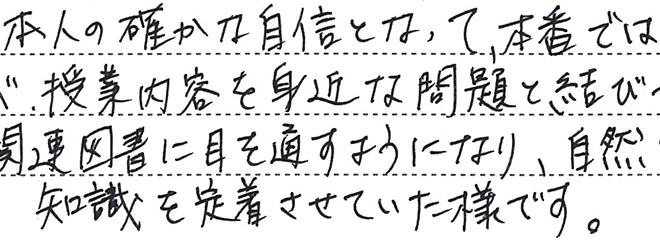 本人の確かな自信となって、本番では
、授業内容を身近な問題と結び
関連図書に目を通すようになり、自然
知識を定着させていた様です。